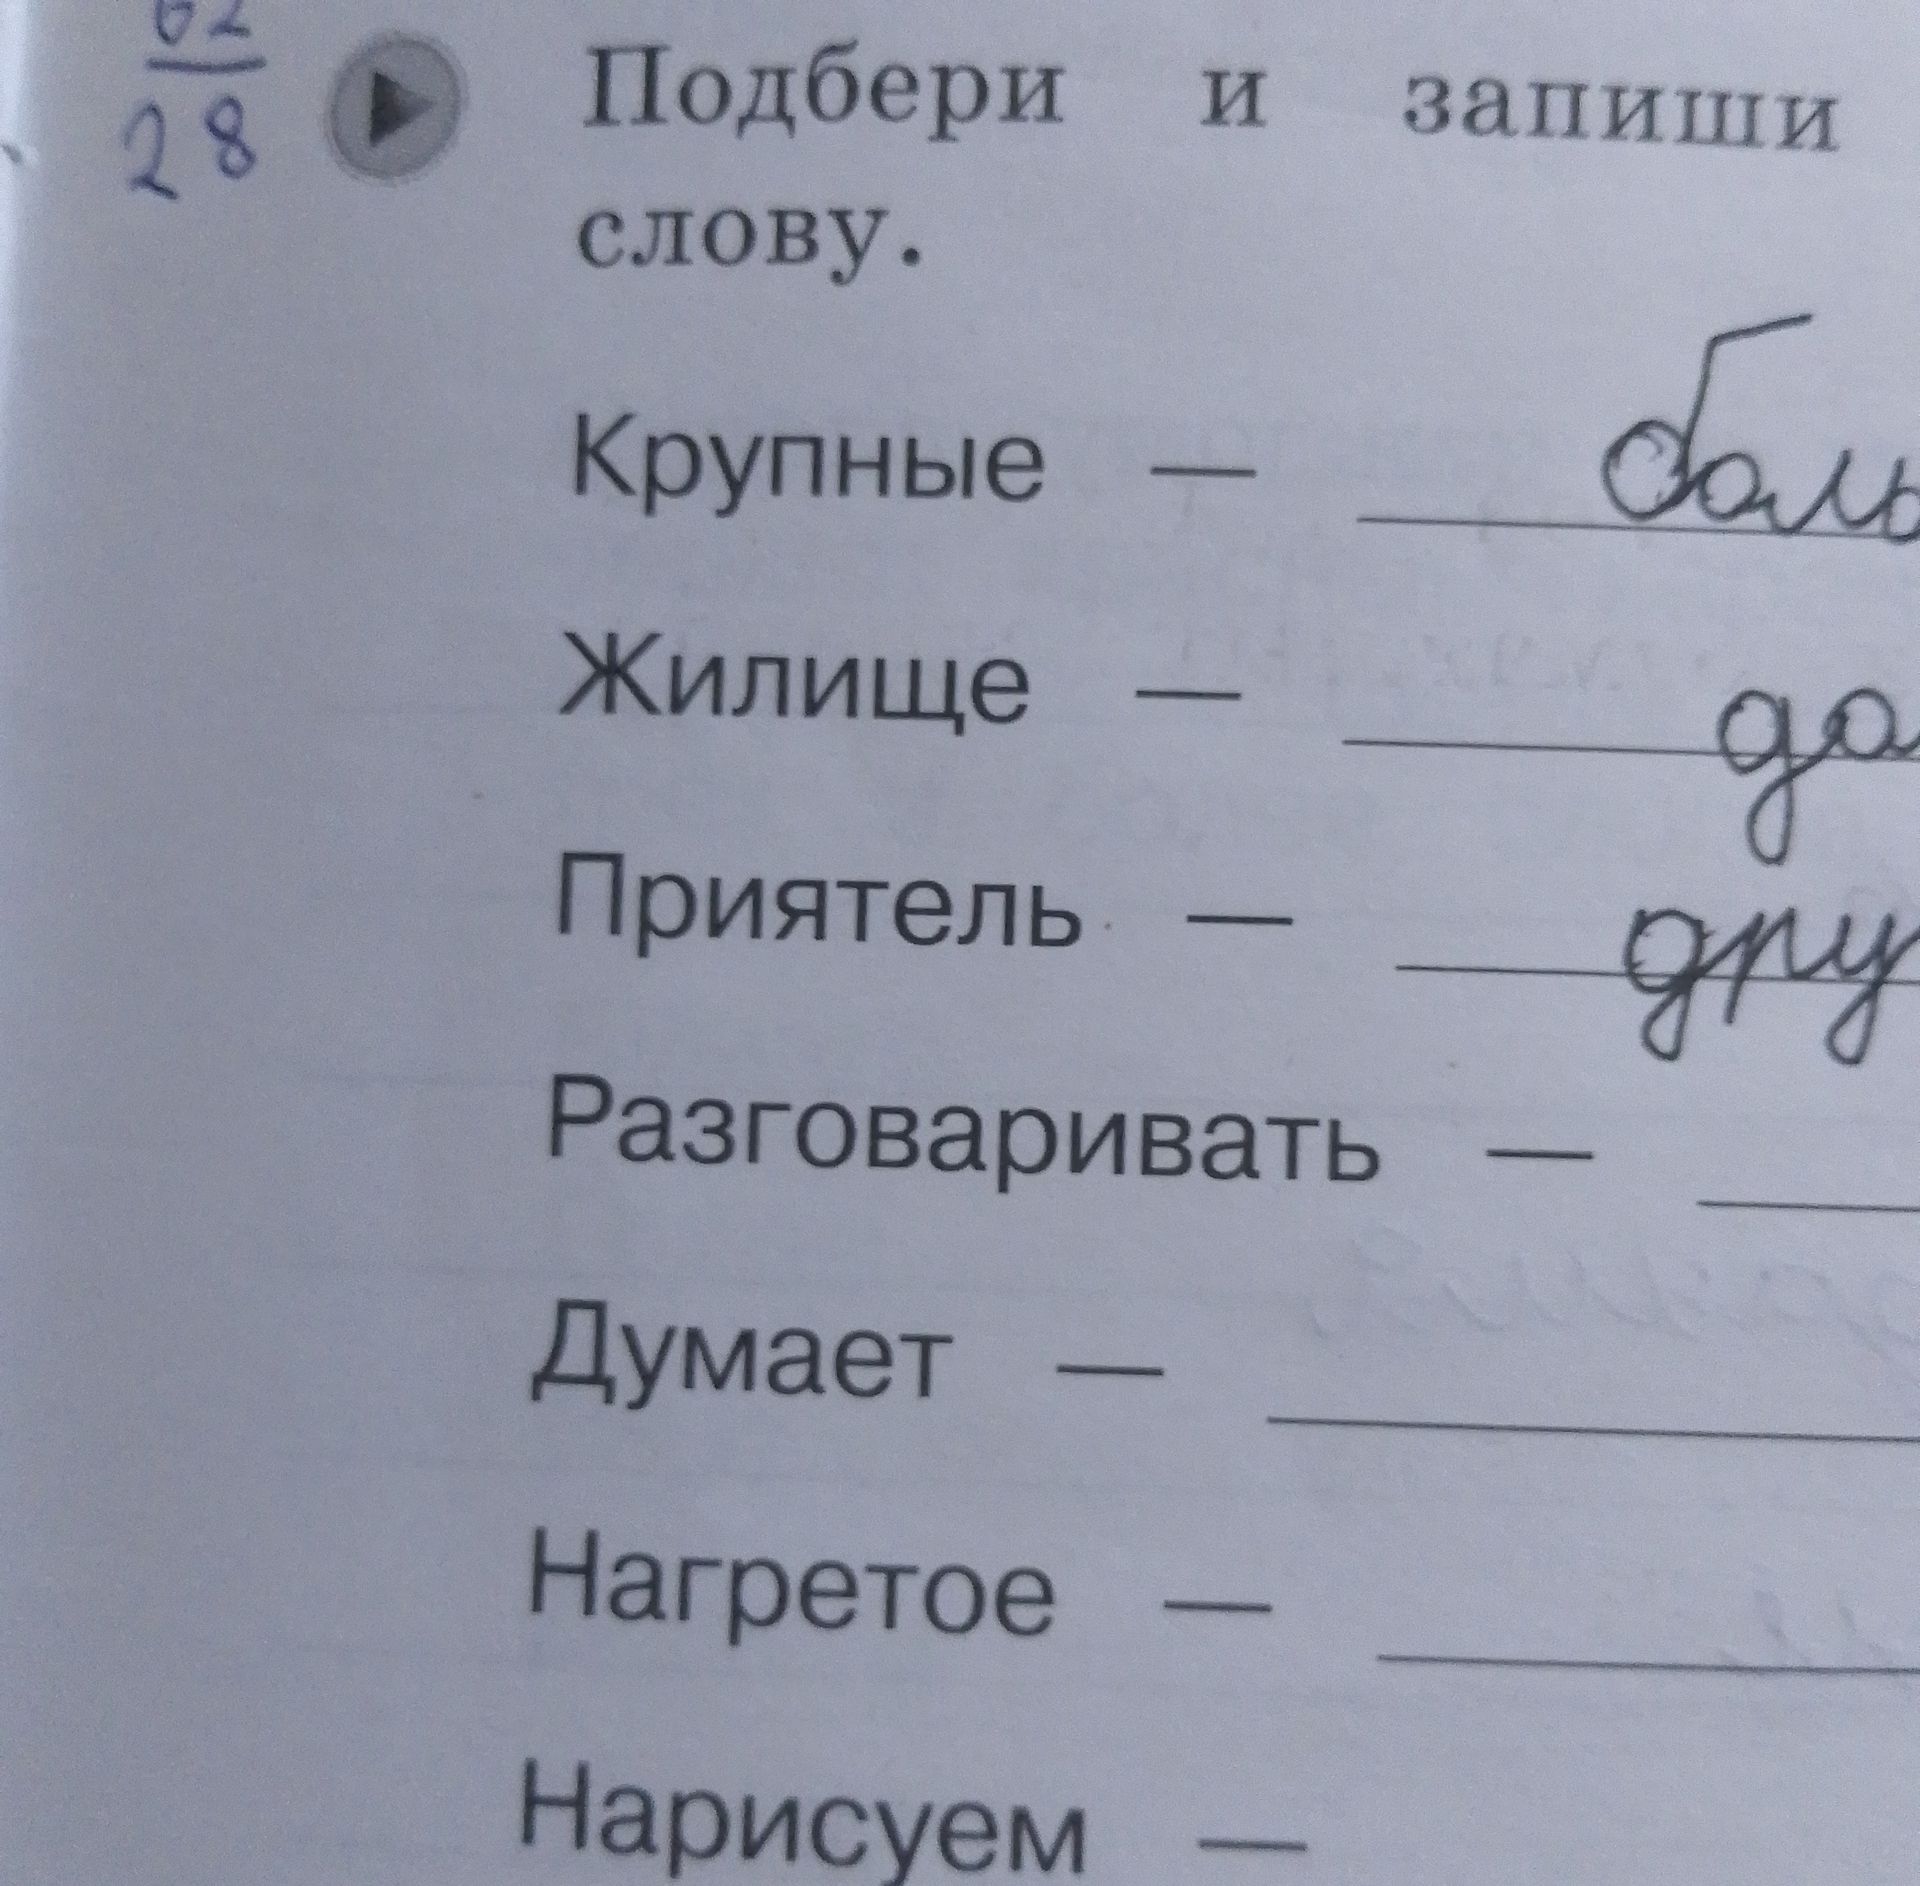 28
Подбери и запиши
слову.
Крупные — боль
Жилище — до
Приятель — дру
Разговаривать —
Думает —
Нагретое —
Нарисуем —